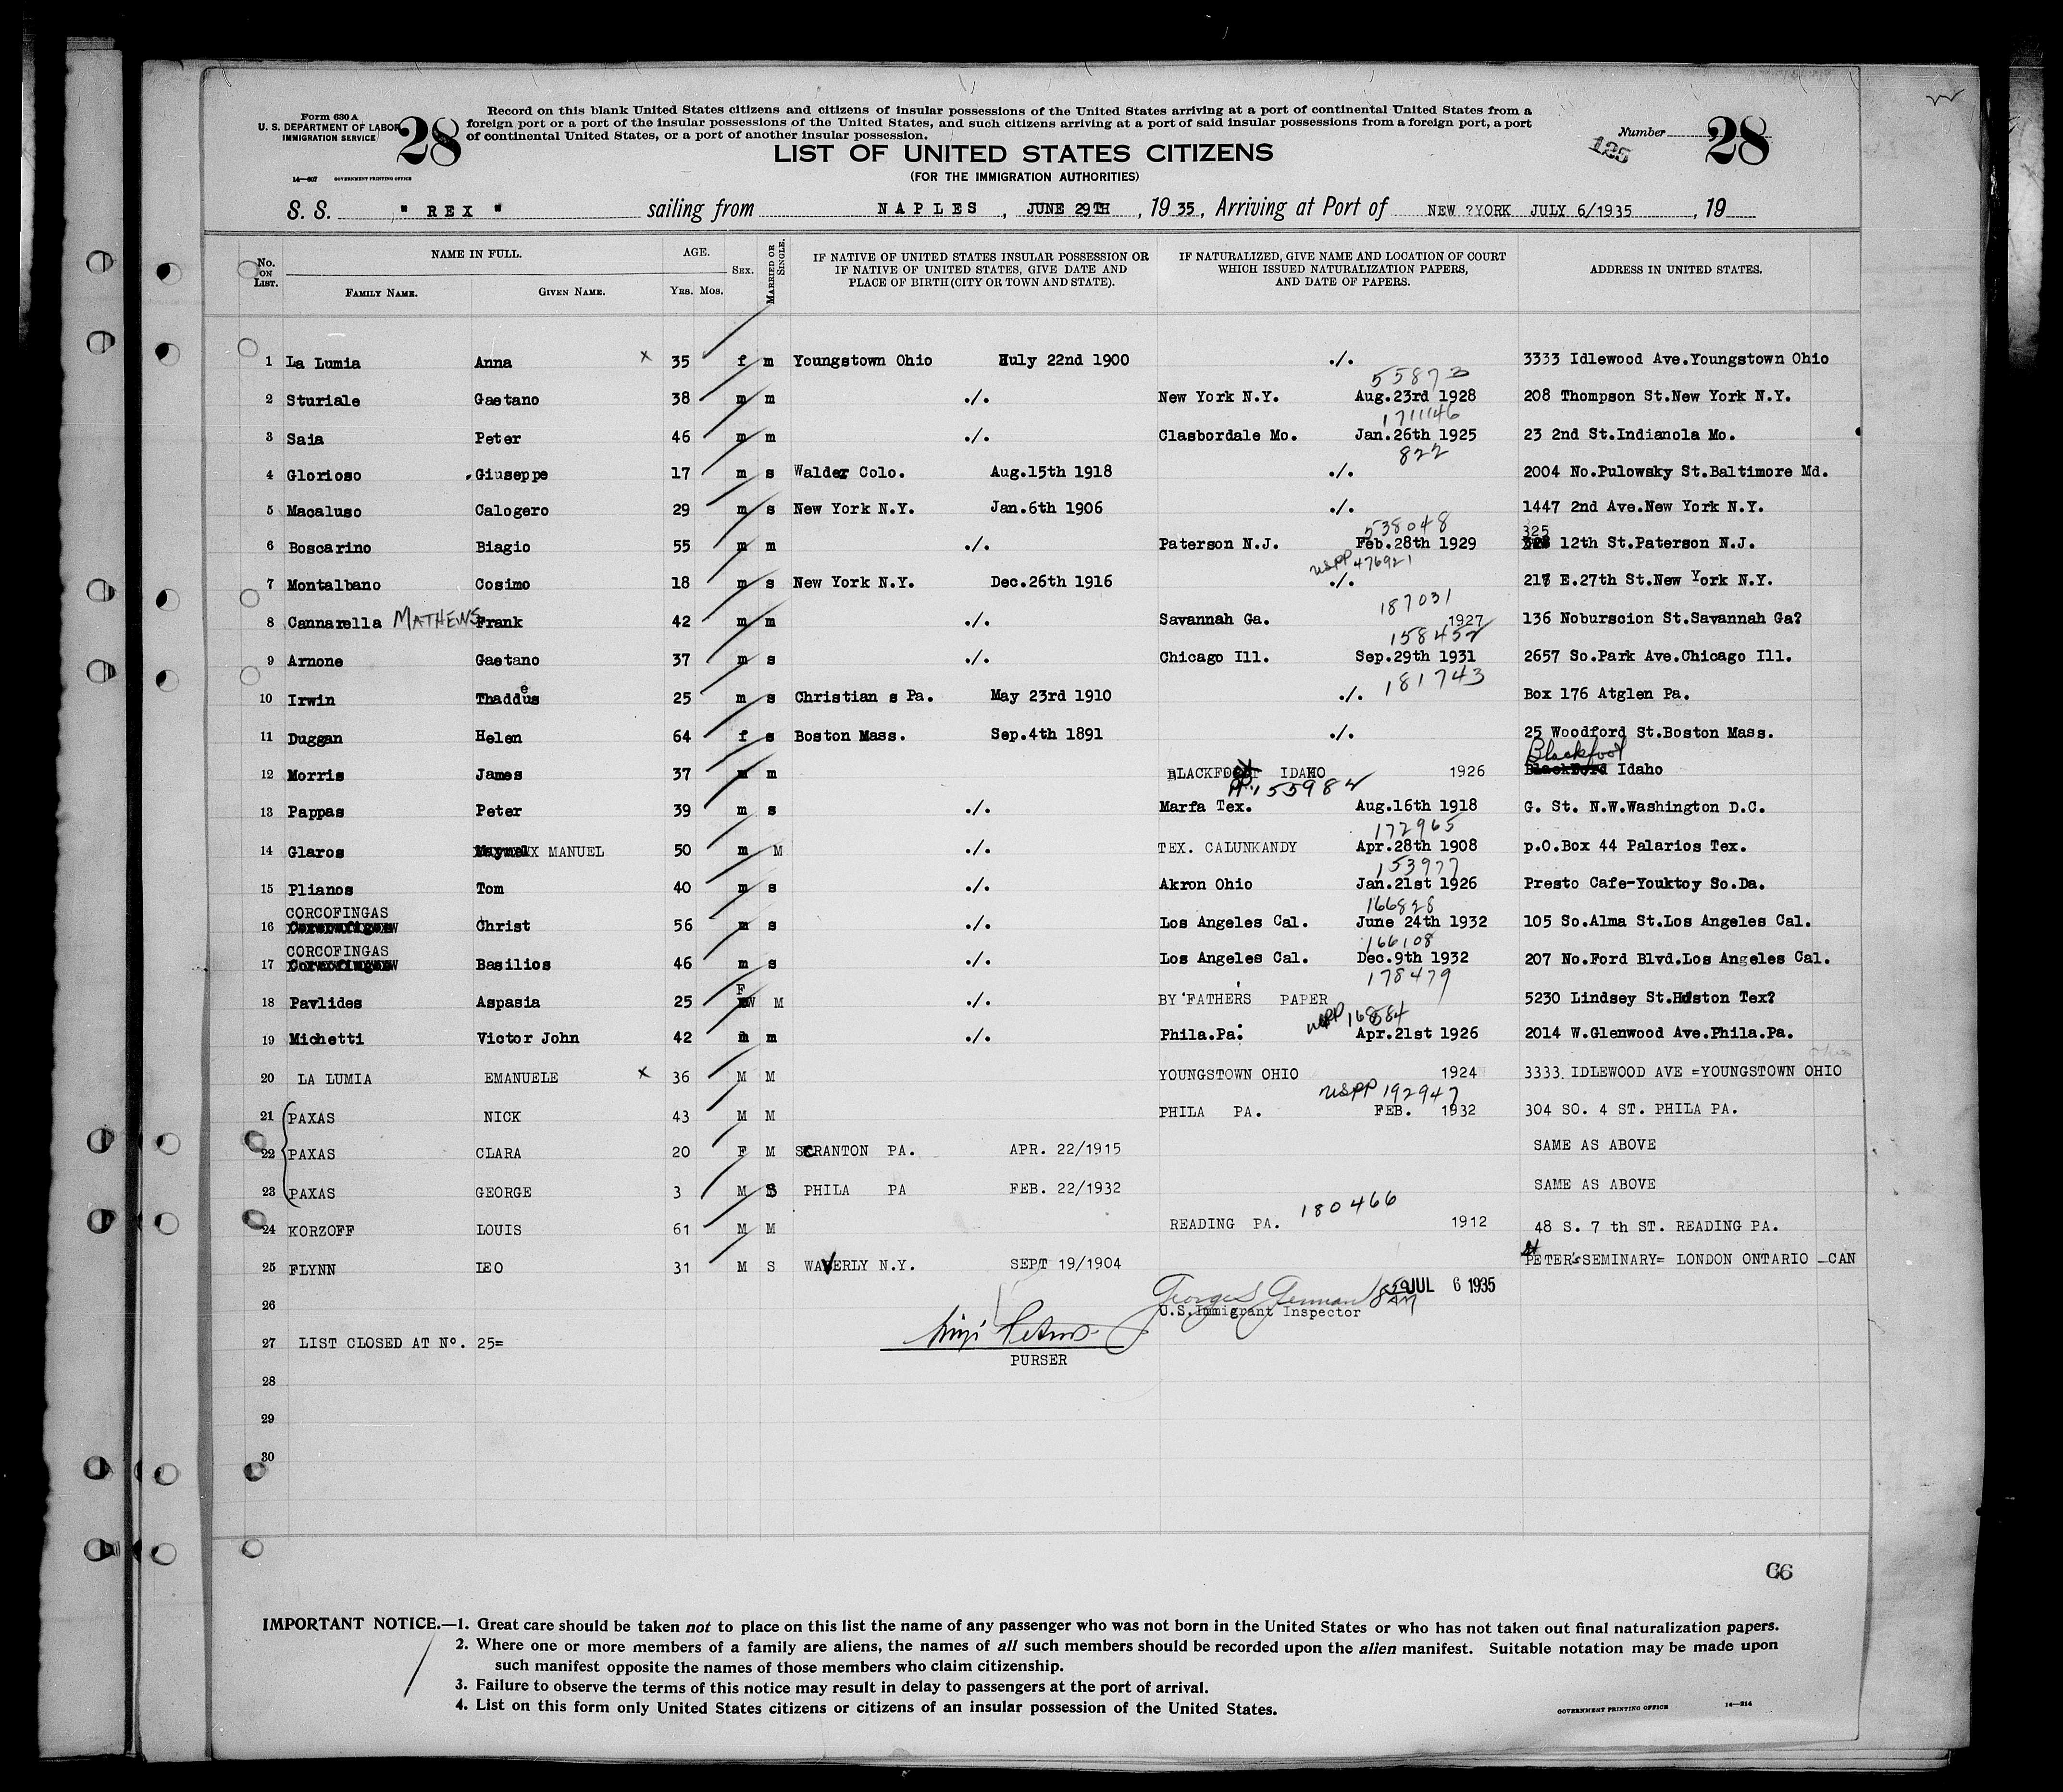 Form 630 A
U. S. DEPARTMENT OF LABOR
IMMIGRATION SERVICE
28
14—607 GOVERNMENT PRINTING OFFICE
Record on this blank United States citizens and citizens of insular possessions of the United States arriving at a port of continental United States from a
foreign port or a port of the insular possessions of the United States, and such citizens arriving at a port of said insular possessions from a foreign port, a port
of continental United States, or a port of another insular possession.
Number 28
125
LIST OF UNITED STATES CITIZENS
(FOR THE IMMIGRATION AUTHORITIES)
S. S. " REX " sailing from NAPLES , JUNE 29TH , 19 35 , Arriving at Port of NEW ?YORK JULY 6/1935 , 19
No. ON LIST. NAME IN FULL. FAMILY NAME. GIVEN NAME. AGE. YRS. MOS. SEX. MARRIED OR SINGLE. IF NATIVE OF UNITED STATES INSULAR POSSESSION OR IF NATIVE OF UNITED STATES, GIVE DATE AND PLACE OF BIRTH (CITY OR TOWN AND STATE). IF NATURALIZED, GIVE NAME AND LOCATION OF COURT WHICH ISSUED NATURALIZATION PAPERS, AND DATE OF PAPERS. ADDRESS IN UNITED STATES.
1 La Lumia Anna x 35 f m Youngstown Ohio July 22nd 1900 ./. 3333 Idlewood Ave.Youngstown Ohio
55873
2 Sturiale Gaetano 38 m m ./. New York N.Y. Aug.23rd 1928 208 Thompson St.New York N.Y.
1711146
3 Saia Peter 46 m m ./. Clasbordale Mo. Jan.26th 1925 23 2nd St.Indianola Mo.
822
4 Glorioso Giuseppe 17 m s Walder Colo. Aug.15th 1918 ./. 2004 No.Pulowsky St.Baltimore Md.
5 Macaluso Calogero 29 m s New York N.Y. Jan.6th 1906 ./. 1447 2nd Ave.New York N.Y.
538048 325
6 Boscarino Biagio 55 m m ./. Paterson N.J. Feb.28th 1929 12th St.Paterson N.J.
USPP 476921
7 Montalbano Cosimo 18 m s New York N.Y. Dec.26th 1916 ./. 217 E.27th St.New York N.Y.
187031
8 Cannarella MATHEWS Frank 42 m m ./. Savannah Ga. 1927 136 Noburscion St.Savannah Ga?
158452
9 Arnone Gaetano 37 m s ./. Chicago Ill. Sep.29th 1931 2657 So.Park Ave.Chicago Ill.
181743
10 Irwin Thaddeus 25 m s Christian s Pa. May 23rd 1910 ./. Box 176 Atglen Pa.
11 Duggan Helen 64 f s Boston Mass. Sep.4th 1891 ./. 25 Woodford St.Boston Mass.
Blackfoot
12 Morris James 37 m m BLACKFOOT IDAHO 1926 Blackford Idaho
155982
13 Pappas Peter 39 m s ./. Marfa Tex. Aug.16th 1918 G. St. N.W.Washington D.C.
172965
14 Glaros MANUEL 50 m M ./. TEX. CALUNKANDY Apr.28th 1908 p.O.Box 44 Palarios Tex.
153977
15 Plianos Tom 40 m s ./. Akron Ohio Jan.21st 1926 Presto Cafe-Youktoy So.Da.
166828
CORCOFINGAS
16 Christ 56 m s ./. Los Angeles Cal. June 24th 1932 105 So.Alma St.Los Angeles Cal.
166108
CORCOFINGAS
17 Basilios 46 m s ./. Los Angeles Cal. Dec.9th 1932 207 No.Ford Blvd.Los Angeles Cal.
178479
18 Pavlides Aspasia 25 F M ./. BY FATHERS PAPER 5230 Lindsey St.Huston Tex?
USPP 16884
19 Michetti Victor John 42 m m ./. Phila.Pa. Apr.21st 1926 2014 W.Glenwood Ave.Phila.Pa.
20 LA LUMIA EMANUELE x 36 M M YOUNGSTOWN OHIO 1924 3333. IDLEWOOD AVE =YOUNGSTOWN OHIO
USPP 192947
21 PAXAS NICK 43 M M PHILA PA. FEB. 1932 304 SO. 4 ST. PHILA PA.
22 PAXAS CLARA 20 F M SCRANTON PA. APR. 22/1915 SAME AS ABOVE
23 PAXAS GEORGE 3 M S PHILA PA FEB. 22/1932 SAME AS ABOVE
180466
24 KORZOFF LOUIS 61 M M READING PA. 1912 48 S. 7 th ST. READING PA.
25 FLYNN LEO 31 M S WAVERLY N.Y. SEPT 19/1904 St PETER'S SEMINARY= LONDON ONTARIO -CAN
JUL 6 1935
26 U.S.Immigrant Inspector
27 LIST CLOSED AT No. 25=
PURSER
28
29
30
66
IMPORTANT NOTICE.—1. Great care should be taken not to place on this list the name of any passenger who was not born in the United States or who has not taken out final naturalization papers.
2. Where one or more members of a family are aliens, the names of all such members should be recorded upon the alien manifest. Suitable notation may be made upon
such manifest opposite the names of those members who claim citizenship.
3. Failure to observe the terms of this notice may result in delay to passengers at the port of arrival.
4. List on this form only United States citizens or citizens of an insular possession of the United States.
GOVERNMENT PRINTING OFFICE 14—814